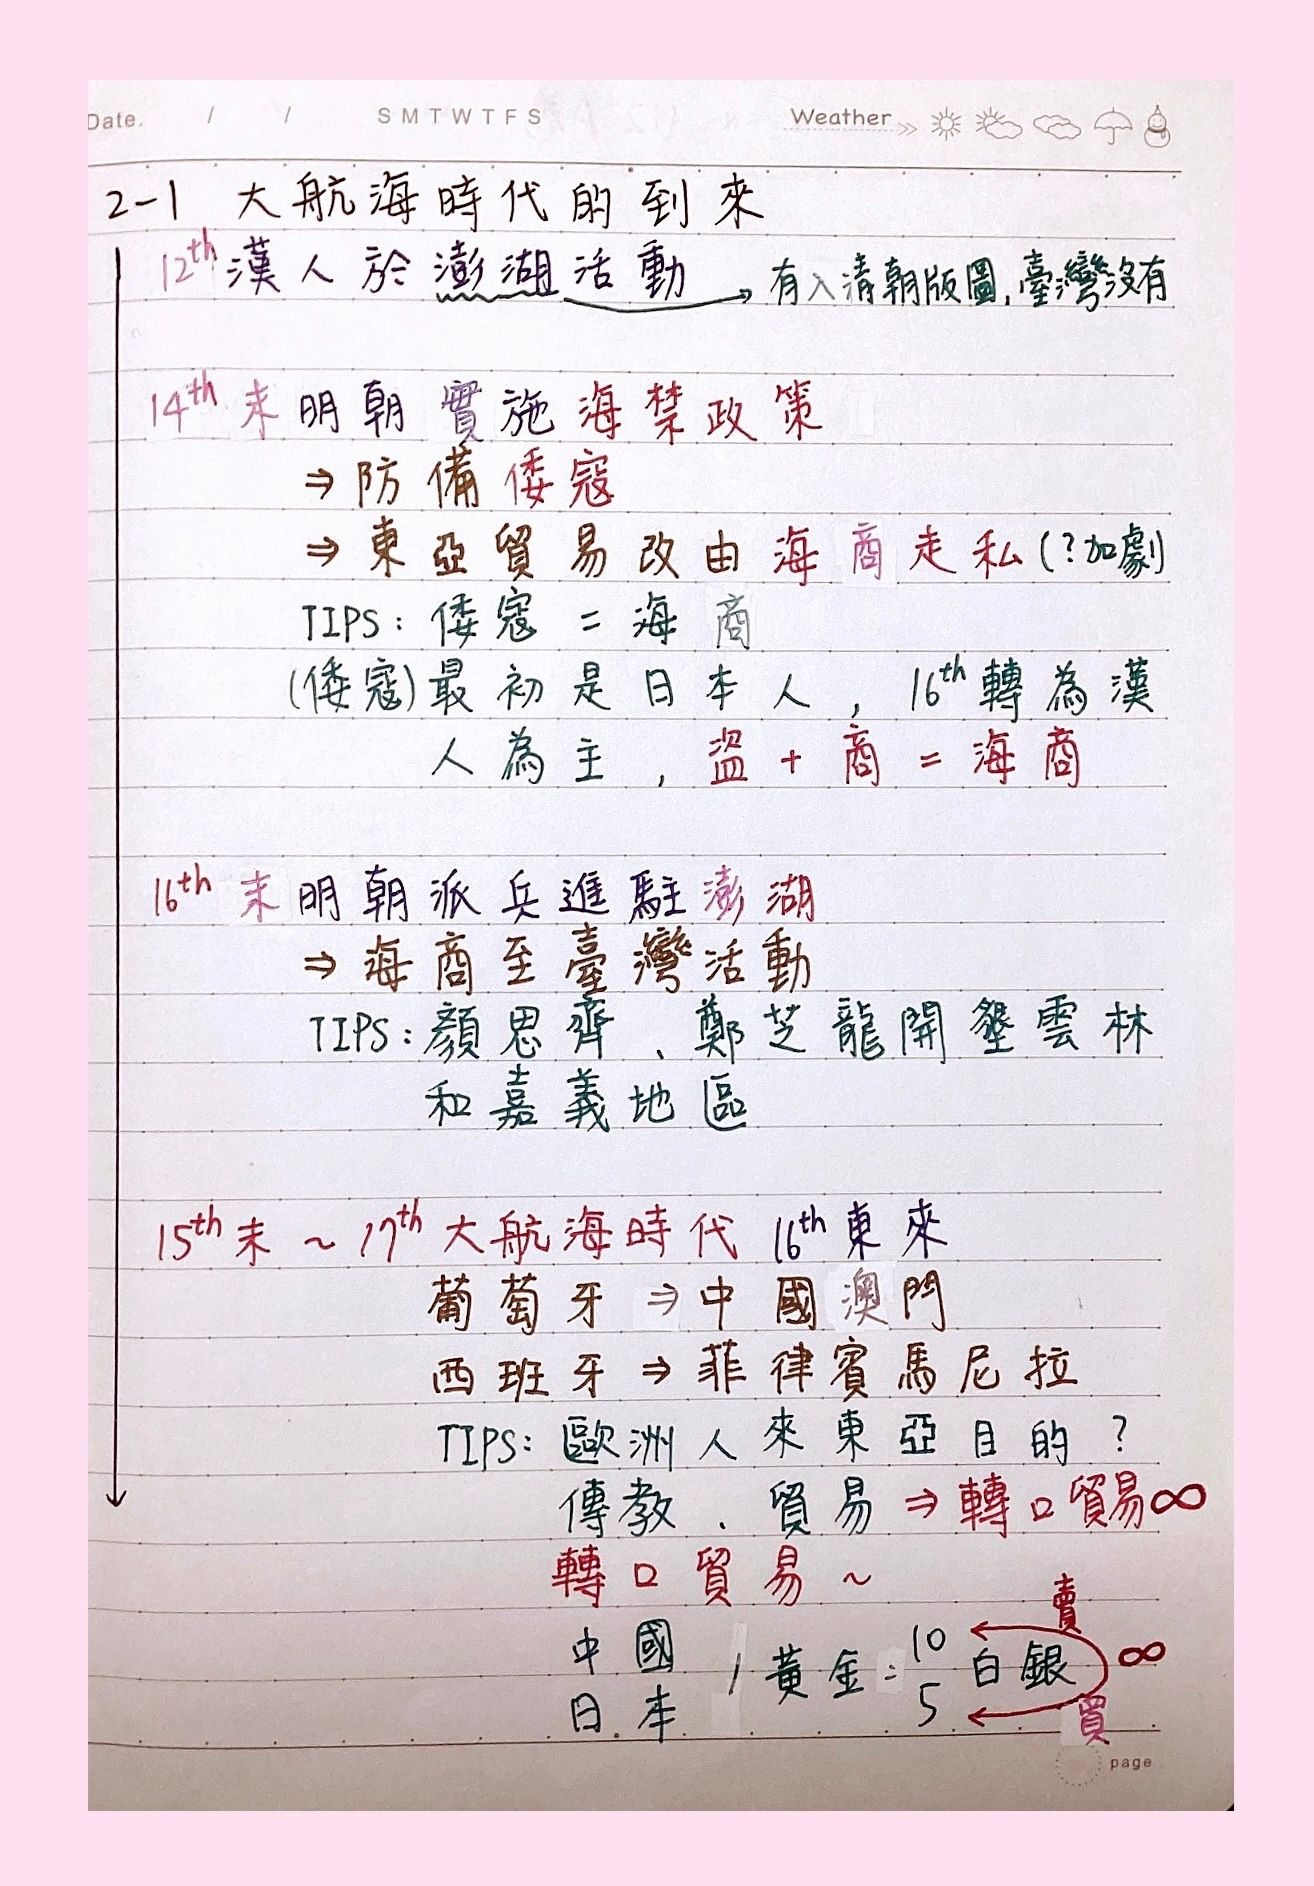 Date. / / S M T W T F S Weather
2-1 大航海時代的到來
12th 漢人於澎湖活動 → 有入清朝版圖,臺灣沒有
14th 末明朝實施海禁政策
⇒ 防備倭寇
⇒ 東亞貿易改由海商走私(?加劇)
TIPS: 倭寇 = 海商
(倭寇)最初是日本人, 16th轉為漢
人為主, 盜 + 商 = 海商
16th 末明朝派兵進駐澎湖
⇒ 海商至臺灣活動
TIPS: 顏思齊、鄭芝龍開墾雲林
和嘉義地區
15th末 ~ 17th 大航海時代 16th東來
葡萄牙 ⇒ 中國澳門
西班牙 ⇒ 菲律賓馬尼拉
TIPS: 歐洲人來東亞目的?
傳教、貿易 ⇒ 轉口貿易∞
轉口貿易~
賣
中國 10
1黃金: 白銀 ∞
日本 5
買
page